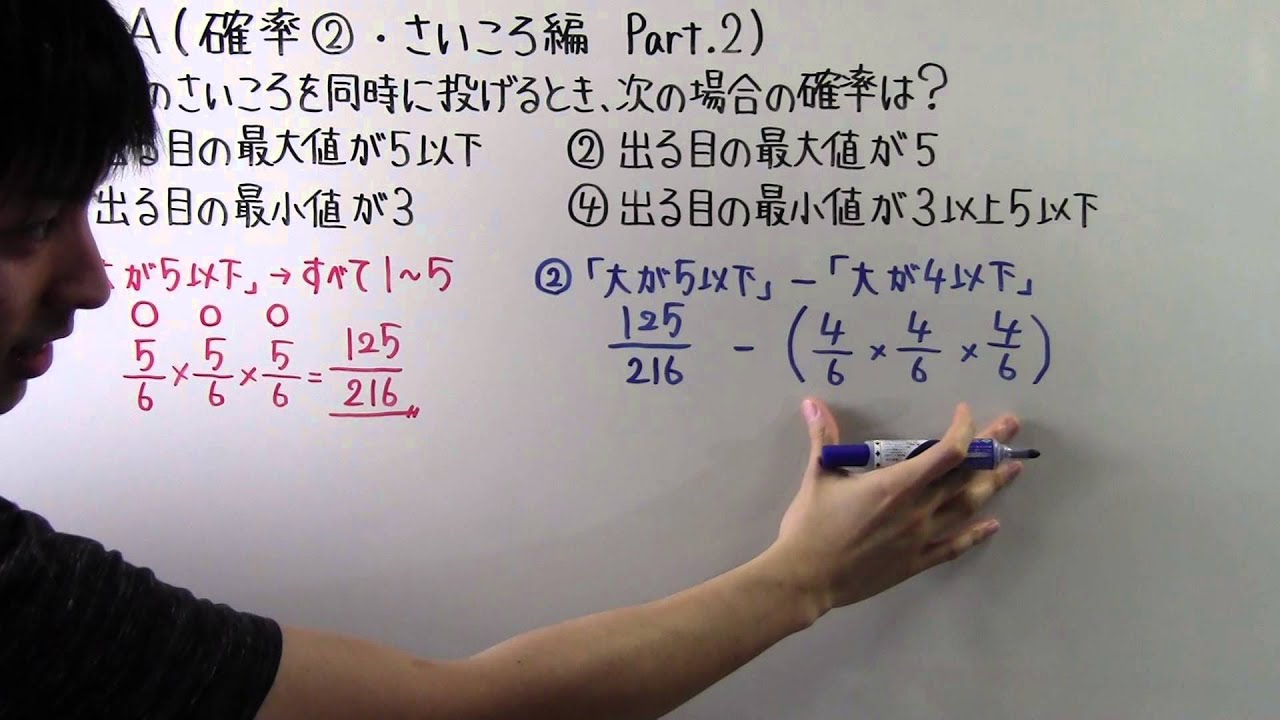 A(確率②・さいころ編 Part.2)
のさいころを同時に投げるとき、次の場合の確率は?
出る目の最大値が5以下 ② 出る目の最大値が5
出る目の最小値が3 ④ 出る目の最小値が3以上5以下
大が5以下」→すべて1~5 ②「大が5以下」-「大が4以下」
○ ○ ○
5/6×5/6×5/6=125/216 125/216 - (4/6×4/6×4/6)